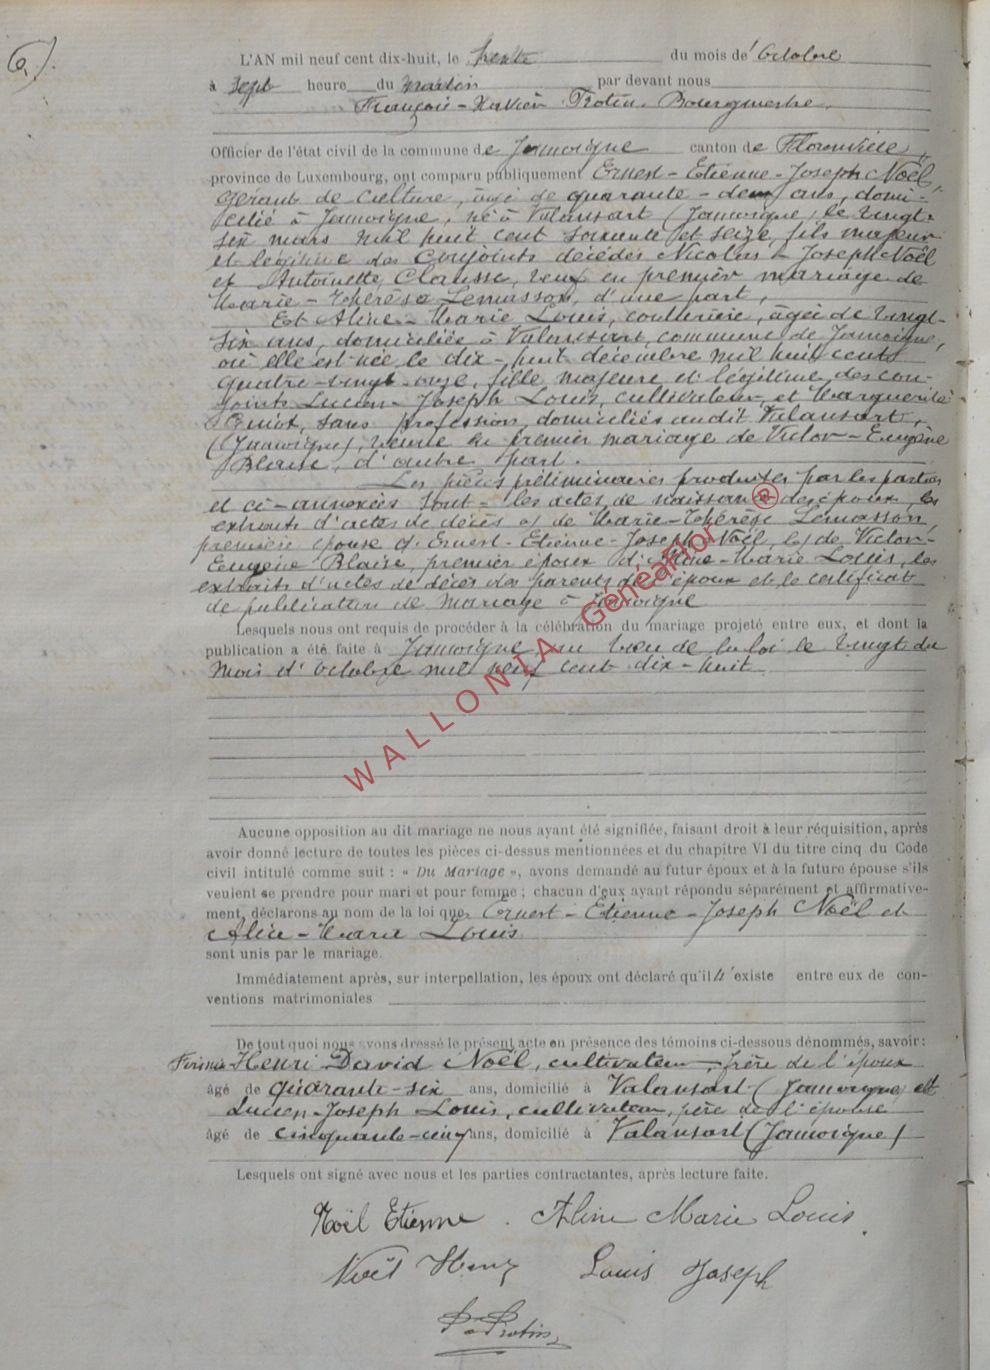 6.)
L'AN mil neuf cent dix-huit, le trente du mois de Octobre
à sept heure du matin par devant nous
François-Xavier Protin, Bourgmestre,
Officier de l'état civil de la commune de Jamoigne canton de Florenville,
province de Luxembourg, ont comparu publiquement Ernest-Etienne-Joseph Noël,
gérant de culture, âgé de quarante-deux ans, domi-
cilié à Jamoigne, né à Valansart (Jamoigne) le vingt-
six mars mil huit cent soixante et seize, fils majeur
et légitime des conjoints décédés Nicolas-Joseph Noël
et Antoinette Clausse, veuf en premier mariage de
Marie-Thérèse Lemasson, d'une part,
Et Aline-Marie Louis, couturière, âgée de vingt-
six ans, domiciliée à Valansart, commune de Jamoigne,
où elle est née le dix-huit décembre mil huit cent
quatre-vingt-onze, fille majeure et légitime des con-
joints Lucien-Joseph Louis, cultivateur, et Marguerite
sans profession, domiciliés audit Valansart,
(Jamoigne), veuve en premier mariage de Victor-Eugène
Blaise, d'autre part.
Les pièces préliminaires produites par les parties
et ci-annexées sont = les actes de naissance des époux, les
extraits d'actes de décès et de Marie-Thérèse Lemasson,
première épouse d'Ernest-Etienne-Joseph Noël, et de Victor-
Eugène Blaise, premier époux d'Aline-Marie Louis, les
extraits d'actes de décès des parents de l'époux et le certificat
de publication de mariage à Jamoigne
Lesquels nous ont requis de procéder à la célébration du mariage projeté entre eux, et dont la
publication a été faite à Jamoigne, au vœu de la loi le vingt du
mois d'octobre mil neuf cent dix-huit
Aucune opposition au dit mariage ne nous ayant été signifiée, faisant droit à leur réquisition, après
avoir donné lecture de toutes les pièces ci-dessus mentionnées et du chapitre VI du titre cinq du Code
civil intitulé comme suit : « Du Mariage », avons demandé au futur époux et à la future épouse s'ils
veulent se prendre pour mari et pour femme ; chacun d'eux ayant répondu séparément et affirmative-
ment, déclarons au nom de la loi que Ernest-Etienne-Joseph Noël et
Aline-Marie Louis
sont unis par le mariage.
Immédiatement après, sur interpellation, les époux ont déclaré qu'il n'existe entre eux de con-
ventions matrimoniales
De tout quoi nous avons dressé le présent acte en présence des témoins ci-dessous dénommés, savoir :
Firmin-Henri David Noël, cultivateur, frère de l'époux
âgé de quarante-six ans, domicilié à Valansart (Jamoigne) et
Lucien-Joseph Louis, cultivateur, père de l'épouse
âgé de cinquante-cinq ans, domicilié à Valansart (Jamoigne)
Lesquels ont signé avec nous et les parties contractantes, après lecture faite.
Noël Etienne. Aline Marie Louis.
Noël Henry Louis Joseph
Protin
WALLONIA GénéaFlor ®